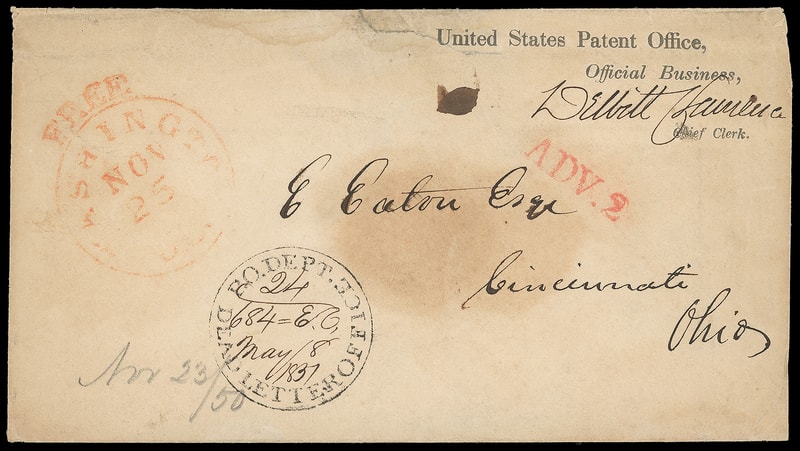 United States Patent Office,
Official Business,
DeWitt Lawrence
Chief Clerk.
FREE
WASHINGTO
NOV
25
ADV. 2
E Eaton Esqr
Cincinnati
Ohio
P.O. DEPT.
DEAD LETTER OFFICE
24
684=E.O,
May 8
1837
Nov 23/50